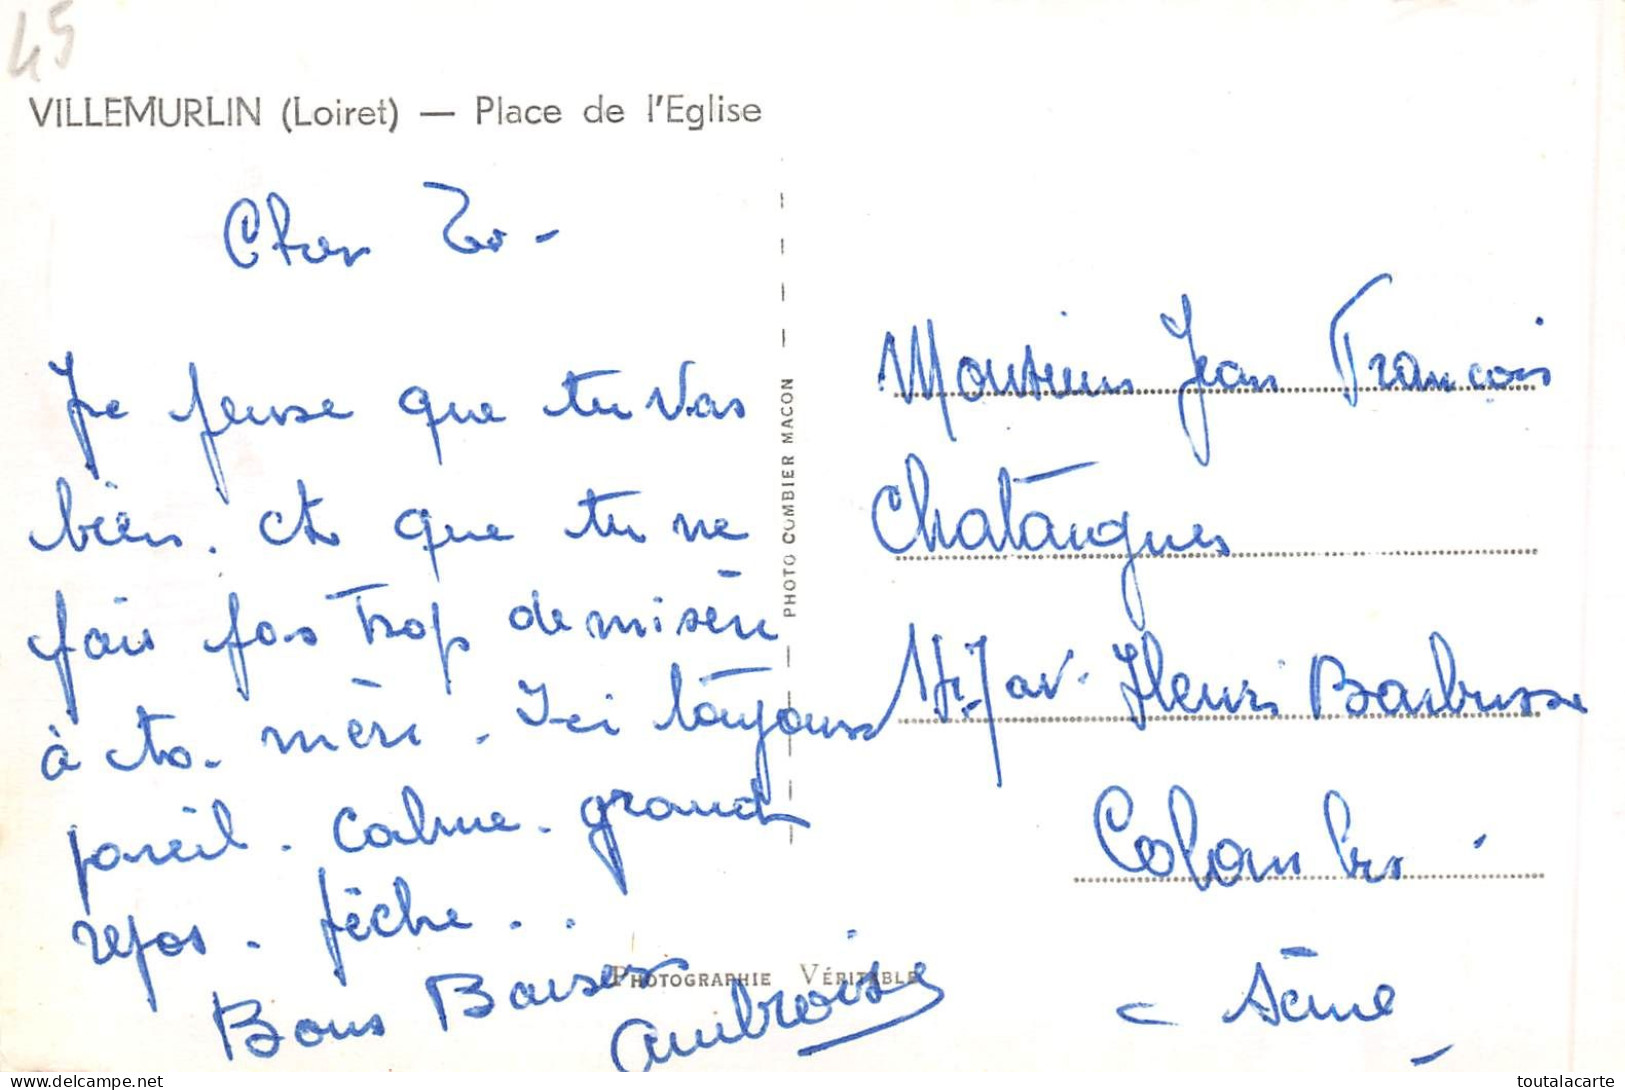 45
VILLEMURLIN (Loiret) — Place de l'Eglise
Cher
Je pense que tu vas
bien. et que tu ne
fais pas trop de misère
à ta mère. Ici toujours
pareil. calme. grand
repos. pêche...
Bons Baises
Ambroise
PHOTO COMBIER MACON
PHOTOGRAPHIE VÉRITABLE
Monsieur Jean François
Chataignes
av. Henri Barbusse
Colombes.
Seine
toutalacarte